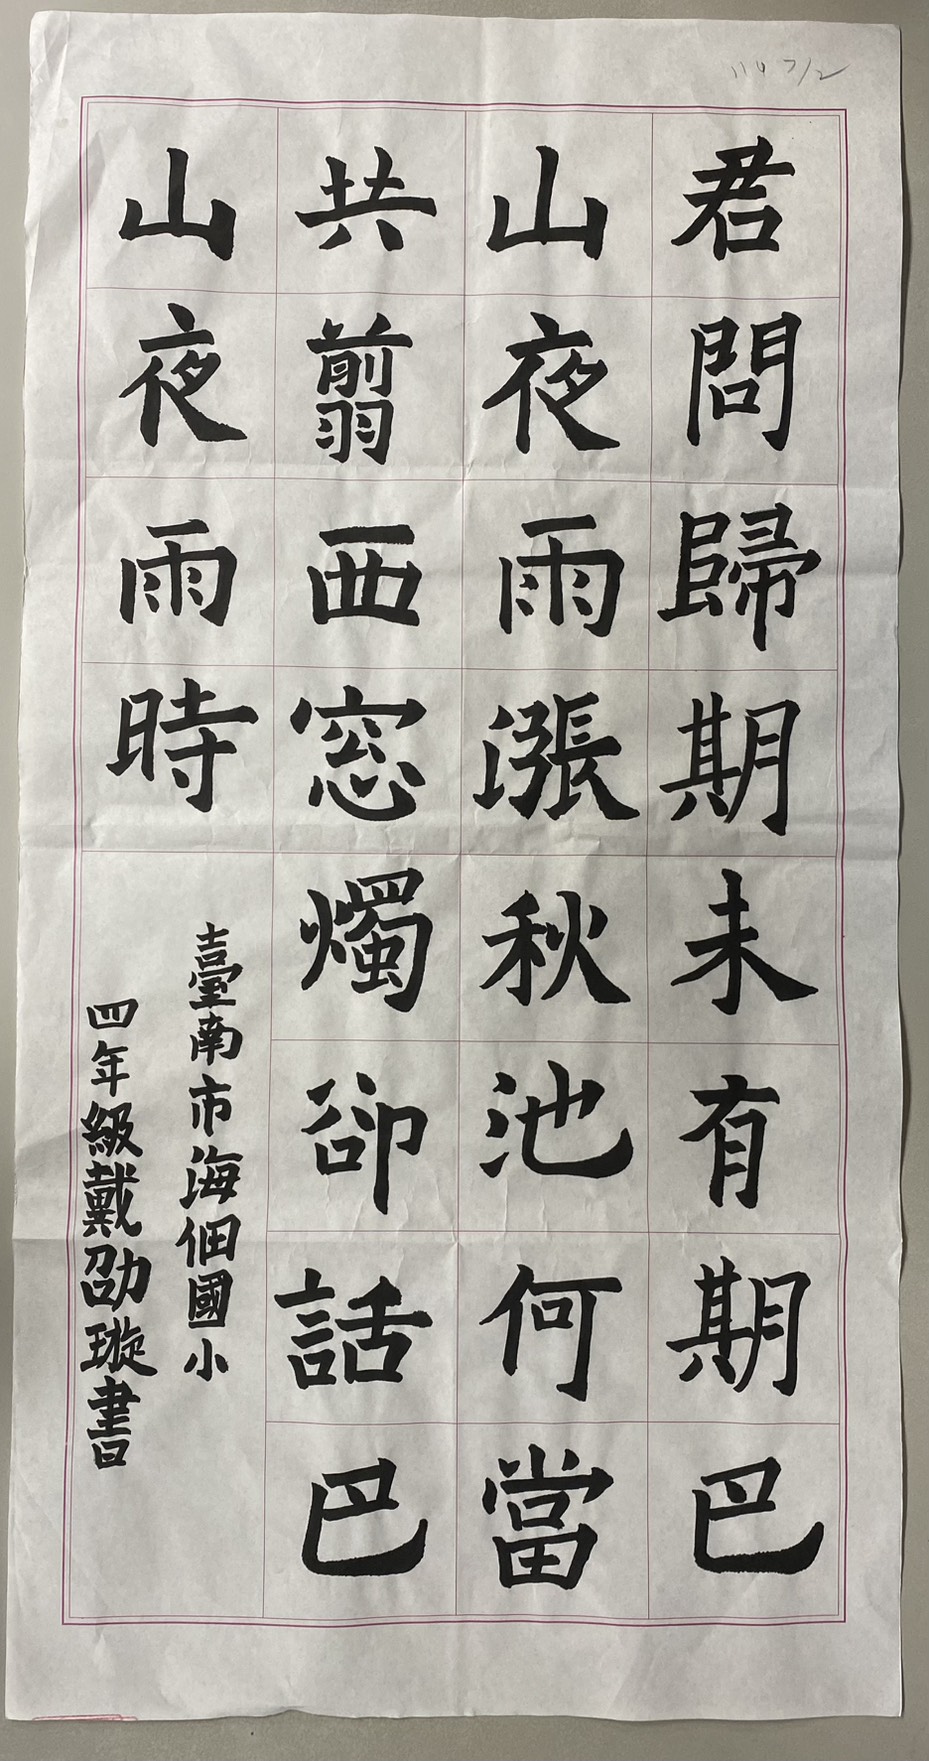 114 7/2
君問歸期未有期巴
山夜雨漲秋池何當
共翦西窓燭卻話巴
山夜雨時
臺南市海佃國小
四年級戴劭璇書